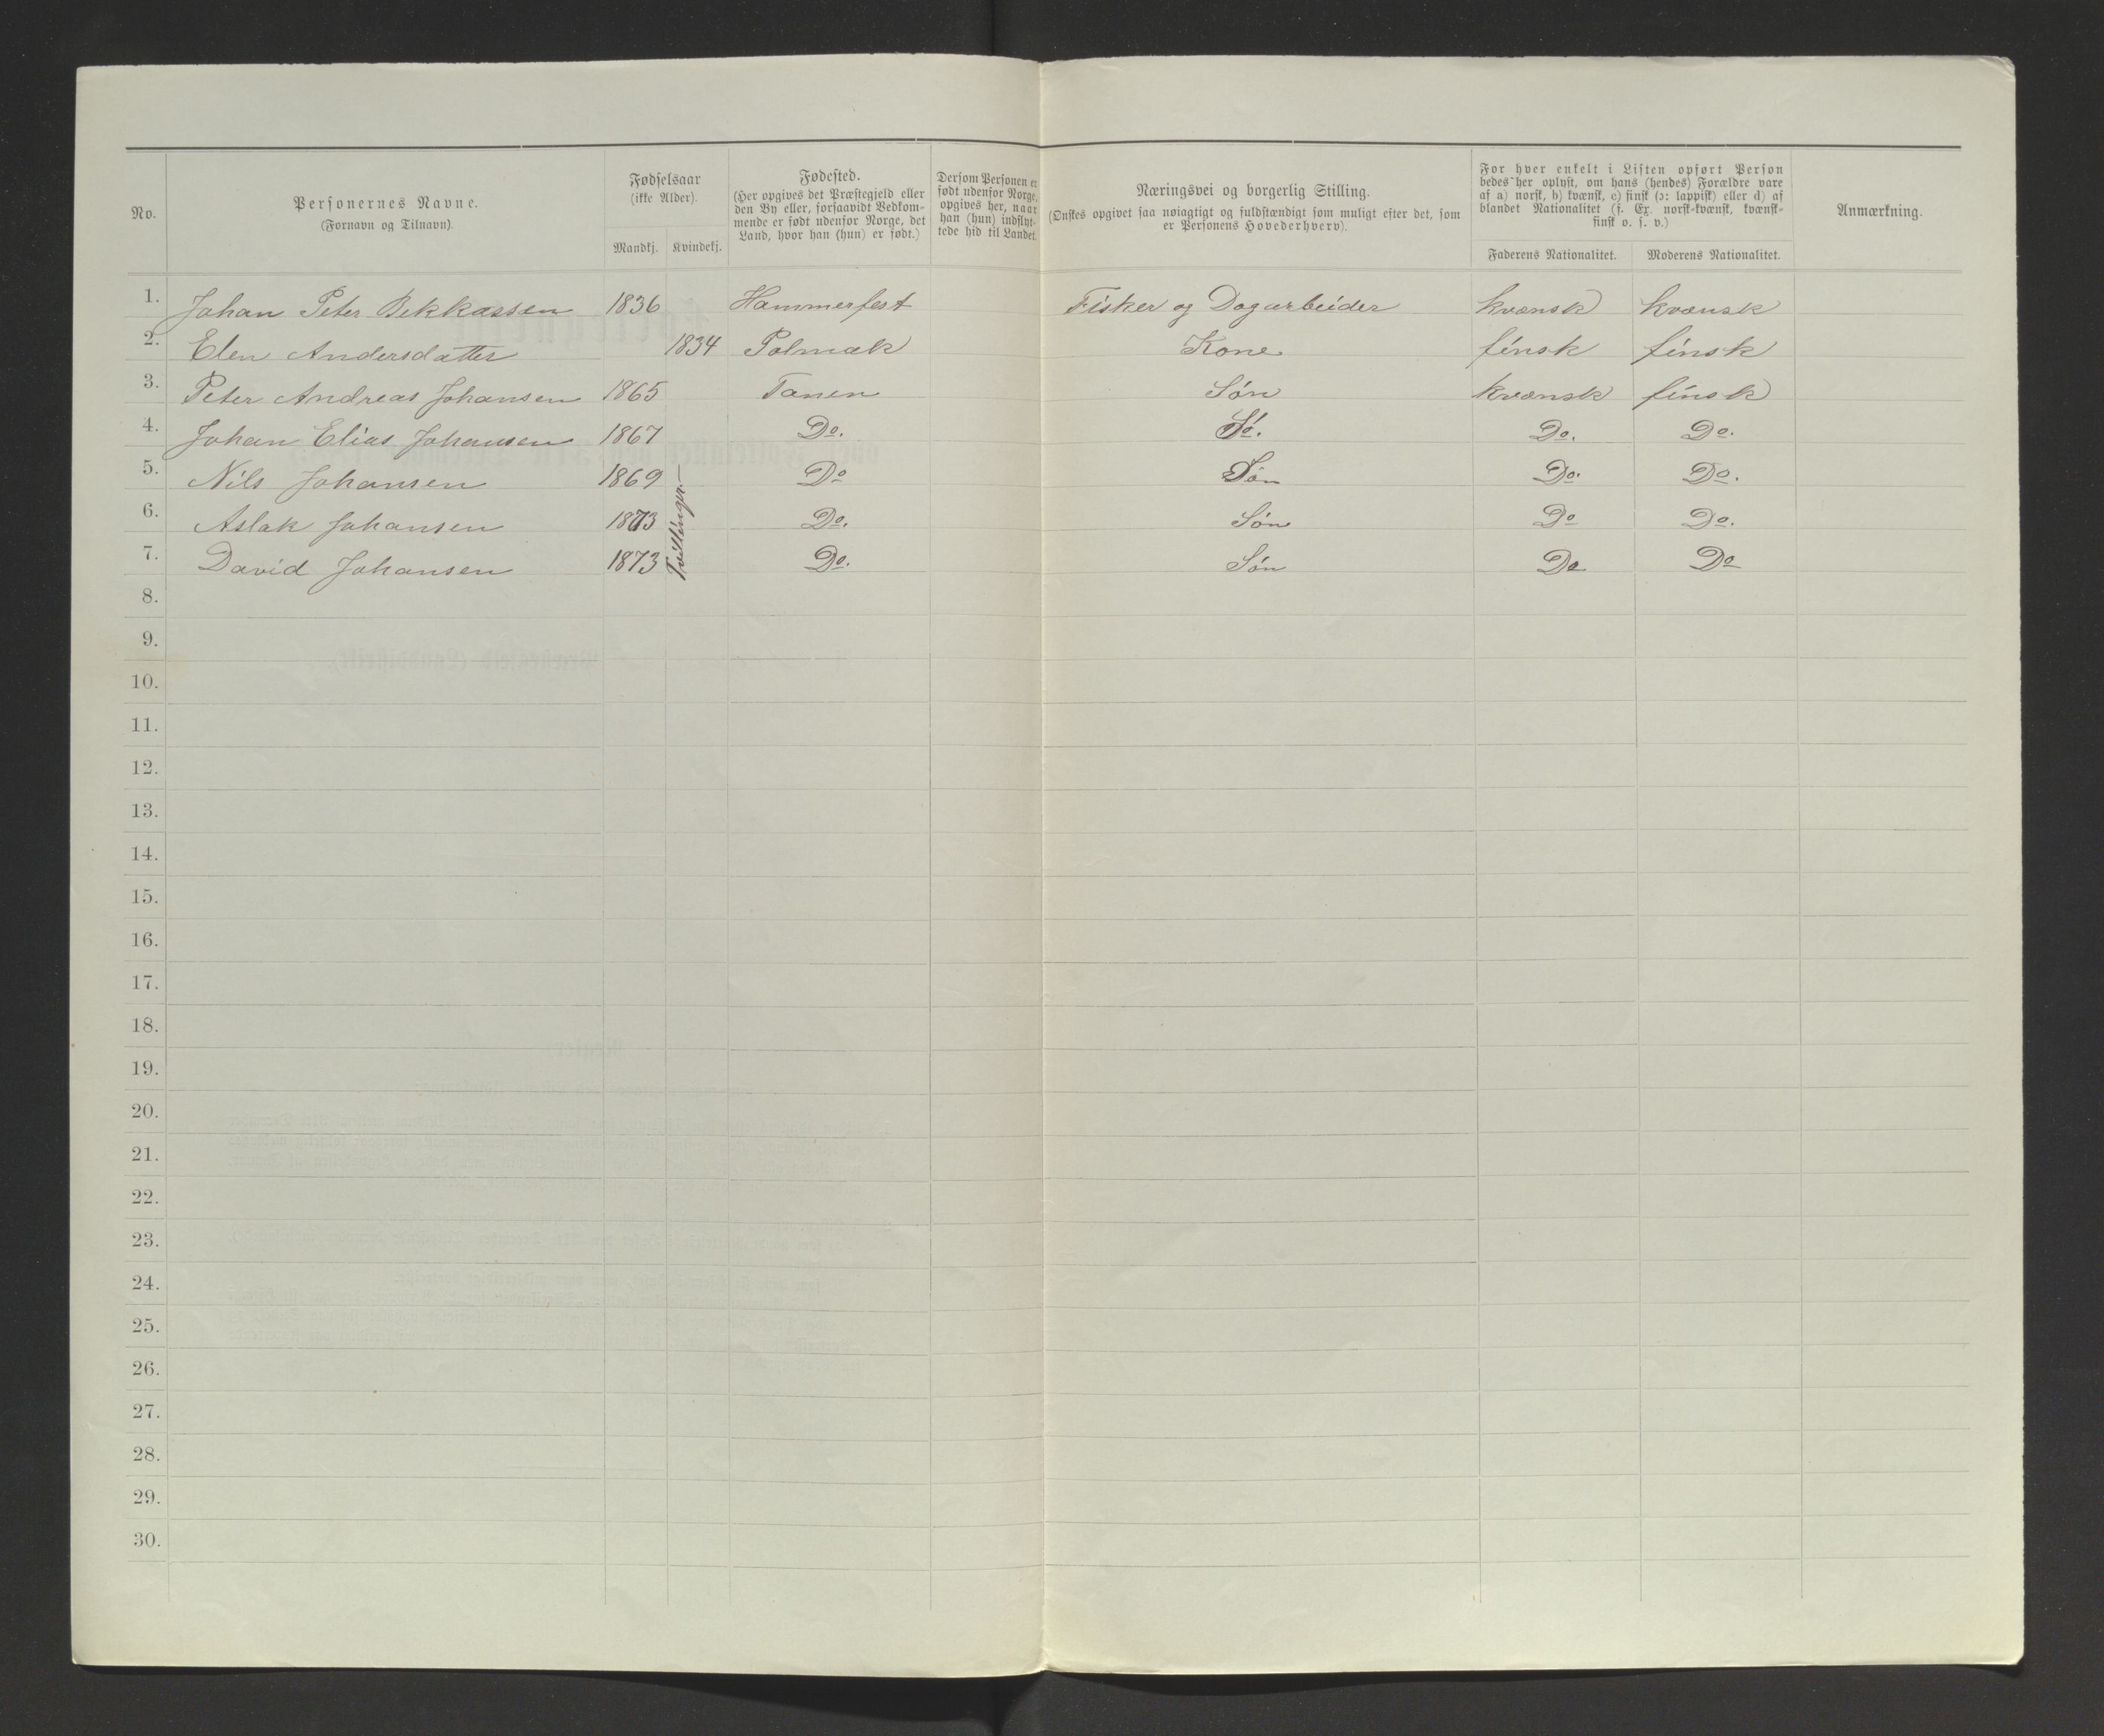 No.
Personernes Navne.
(Fornavn og Tilnavn).
Fødselsaar
(ikke Alder).
Mandkj. Kvindekj.
Fødested.
(Her opgives det Præstegjeld eller
den By eller, forsaavidt Vedkom-
mende er født udenfor Norge, det
Land, hvor han (hun) er født.)
Dersom Personen er
født udenfor Norge,
opgives her, naar
han (hun) indflyt-
tede hid til Landet.
Næringsvei og borgerlig Stilling.
(Ønskes opgivet saa nøiagtigt og fuldstændigt som muligt efter det, som
er Personens Hovederhverv).
For hver enkelt i Listen opført Person
bedes her oplyst, om hans (hendes) Forældre vare
af a) norsk, b) kvænsk, c) finsk (ɔ: lappisk) eller d) af
blandet Nationalitet (f. Ex. norsk-kvænsk, kvænsk-
finsk o. s. v.)
Faderens Nationalitet. Moderens Nationalitet.
Anmærkning.
1. Johan Peter Bekkassen 1836 Hammerfest Fisker og Dagarbeider kvænsk kvænsk
2. Elen Andersdatter 1834 Polmak Kone finsk finsk
3. Peter Andreas Johansen 1865 Tanen Søn kvænsk finsk
4. Johan Elias Johansen 1867 Do. Do. Do. Do.
5. Nils Johansen 1869 Do Søn Do. Do.
6. Aslak Johansen 1873 Do. Søn Do Do.
7. David Johansen 1873 Do. Søn Do Do
Tvillinger.—
8.
9.
10.
11.
12.
13.
14.
15.
16.
17.
18.
19.
20.
21.
22.
23.
24.
25.
26.
27.
28.
29.
30.